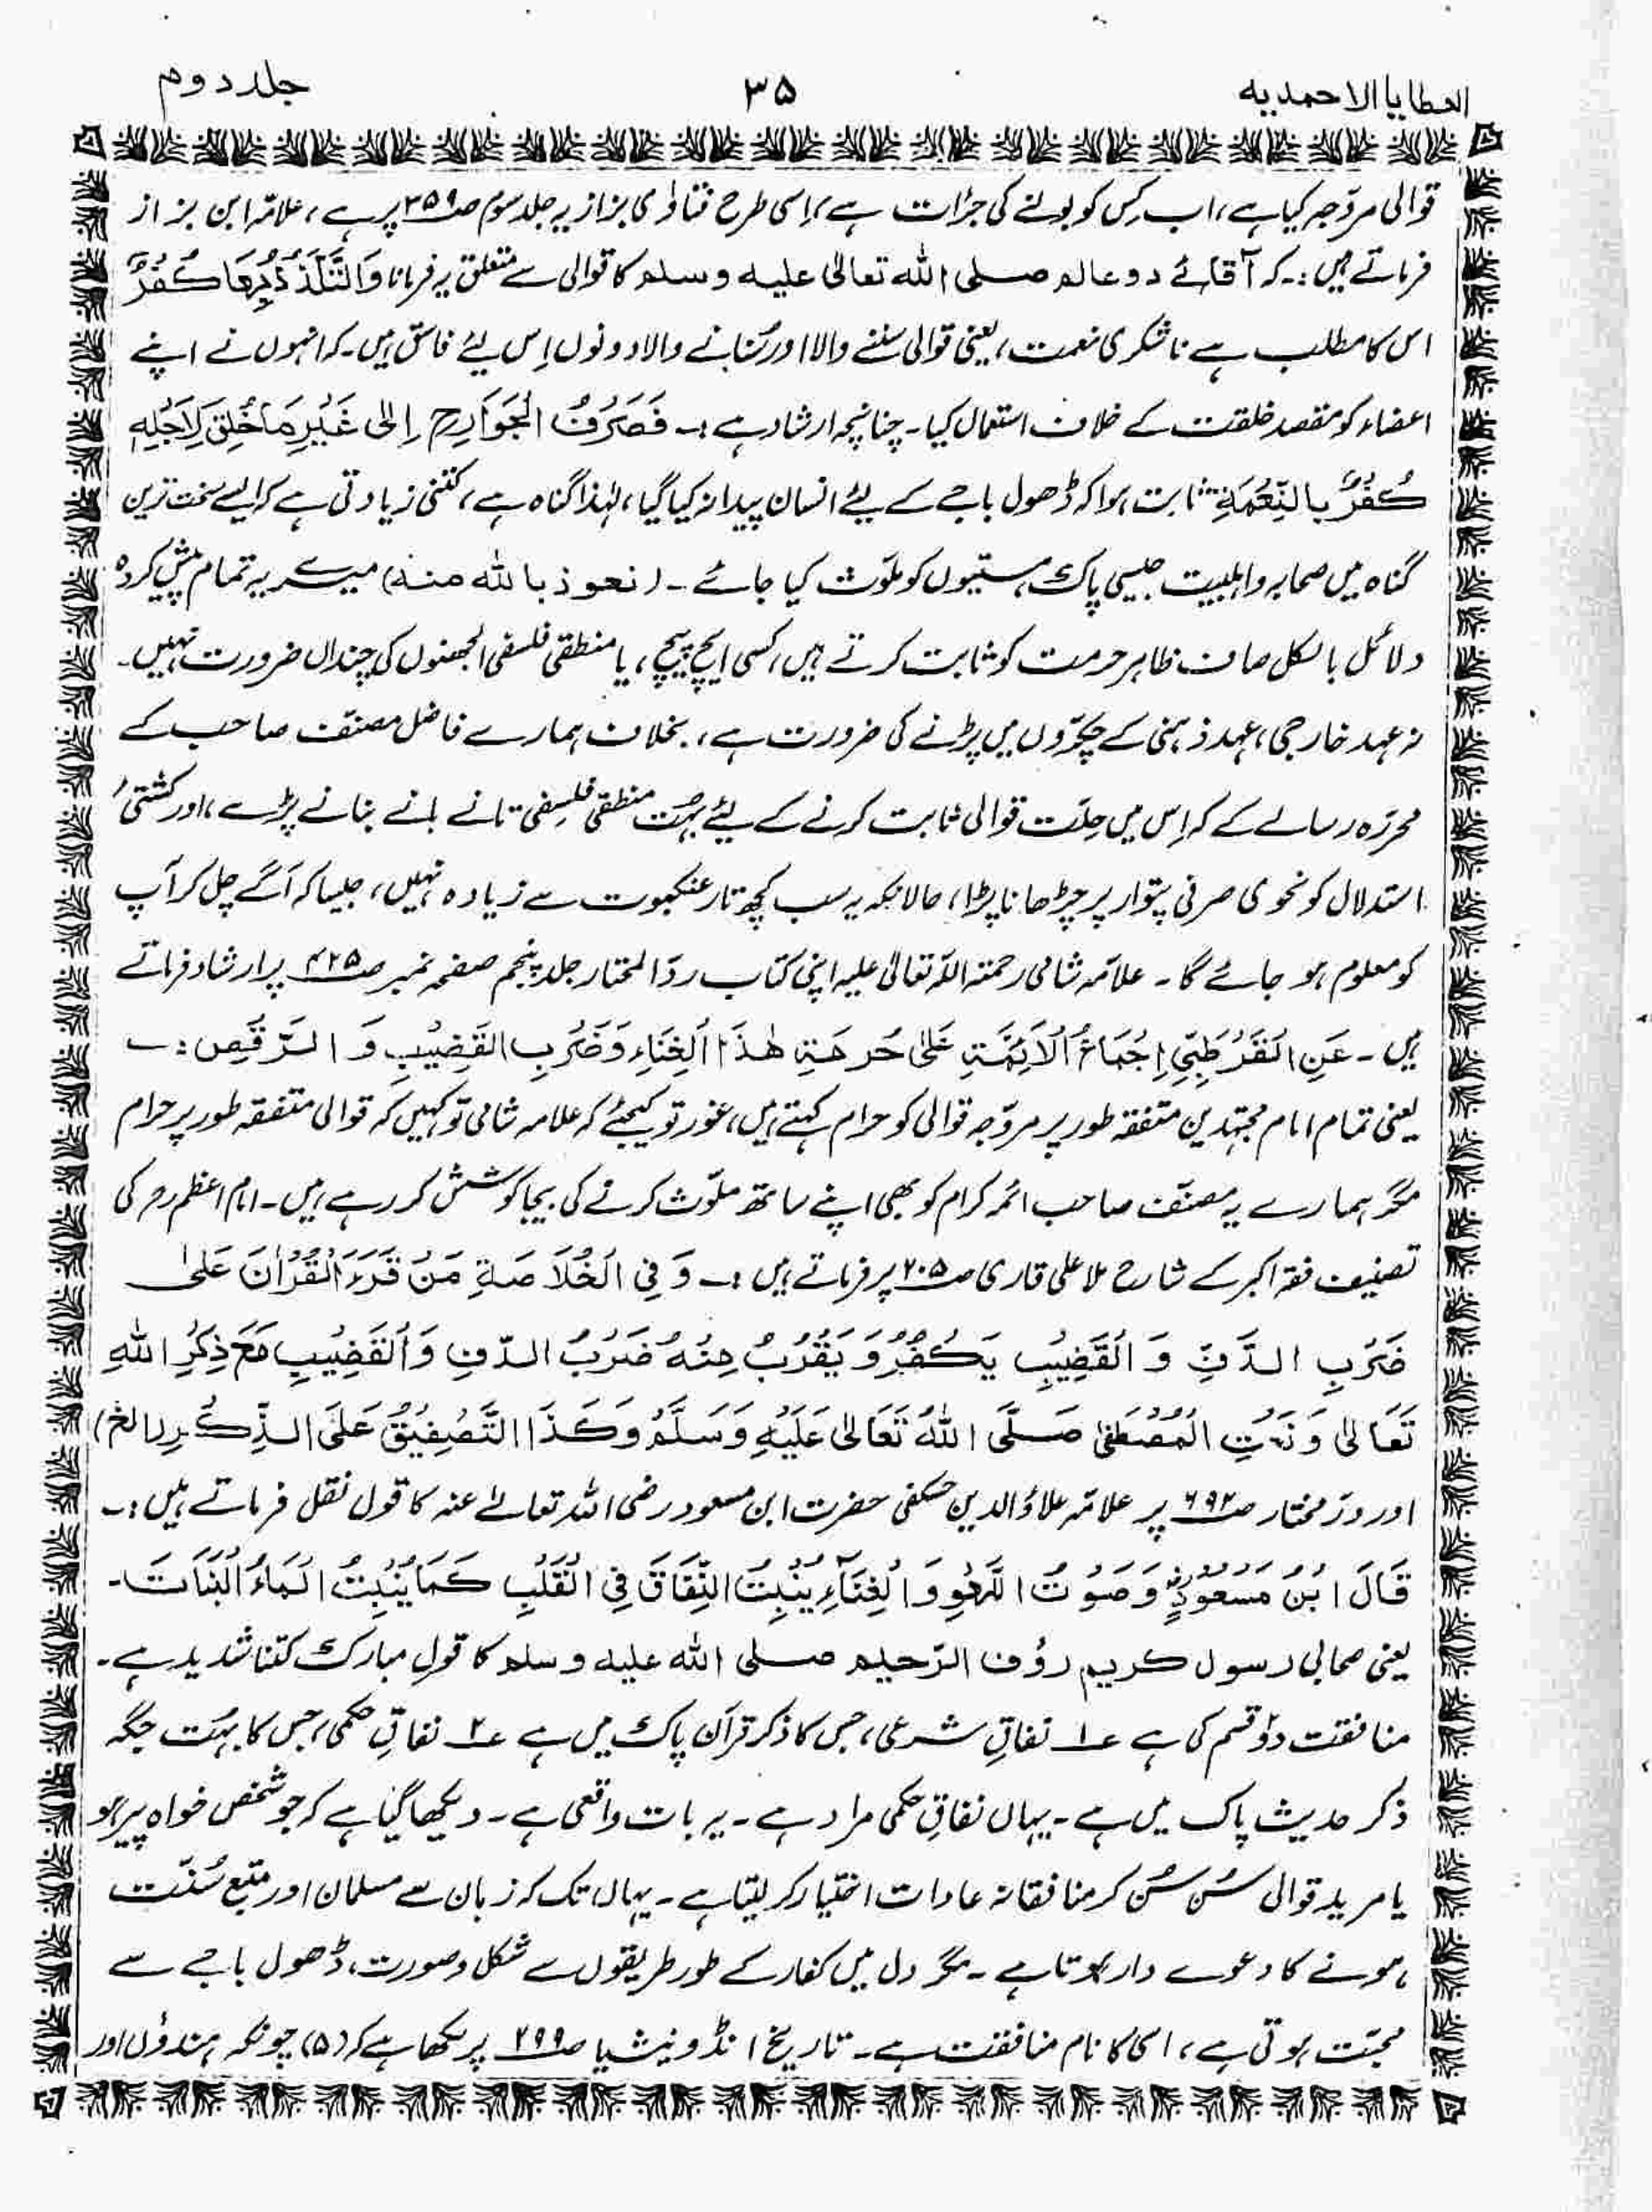 العطایا الاحمدیہ ۳۵ جلد دوم
قوالی مروّجہ کیا ہے، اب کِس کو بولنے کی جرأت ہے، اِسی طرح فتاوٰی بزازیہ جلد سوم صـ۳۵۹ پر ہے، علامّہ ابن بزاز
فرماتے ہیں:۔ کہ آقائے دو عالم صلی اللہ تعالیٰ علیہ وسلم کا قوالی سے متعلق یہ فرمانا وَالتَّلَذُّذُ بِھَا کُفْرٌ
اس کا مطلب ہے ناشکری نعمت، یعنی قوالی سننے والا اور سُنانے والا دونوں اِس لیے فاسق ہیں۔ کہ انہوں نے اپنے
اعضاء کو مقصد خلقت کے خلاف استعمال کیا۔ چنانچہ ارشاد ہے:۔ فَصَرَفُ الْجَوَارِحِ اِلٰی غَیْرِ مَا خُلِقَ لِاَجْلِہٖ
کُفْرٌ بِالنِّعْمَۃِ ثابت ہوا کہ ڈھول باجے کے لیئے انسان پیدا نہ کیا گیا، لہٰذا گناہ ہے، کتنی زیادتی ہے کہ ایسے سخت ترین
گناہ میں صحابہ واہلبیت جیسی پاک ہستیوں کو ملوّث کیا جائے۔ (نعوذ باللہ منہ) میرے یہ تمام پیش کردہ
دلائل بالکل صاف ظاہر حرمت کو ثابت کرتے ہیں، کسی ایچ پیچ، یا منطقی فلسفی الجھنوں کی چنداں ضرورت نہیں۔
نہ عہد خارجی، عہد ذہنی کے چکرّوں میں پڑنے کی ضرورت ہے، بخلاف ہمارے فاضل مصنّف صاحب کے
محررہ رسالے کے کہ اِس میں حِلّت قوالی ثابت کرنے کے لیئے بہت منطقی فلسِفی تانے بانے بنانے پڑے، اور کشتیٔ
استدلال کو نحوی صرفی پتوار پر چڑھانا پڑا، حالانکہ یہ سب کچھ تار عنکبوت سے زیادہ نہیں، جیسا کہ آگے چل کر آپ
کو معلوم ہو جائے گا۔ علامّہ شامی رحمتہ اللہ تعالیٰ علیہ اپنی کتاب ردّ المختار جلد پنجم صفحہ نمبر صـ۴۲۵ پر ارشاد فرماتے
ہیں۔ عَنِ الْقَرُطَبِیِّ اِجْمَاعُ الْاَئِمَّۃِ عَلٰی حُرمَۃِ ھٰذَا الْغِنَاءِ وَضَرْبِ القَضِیْبِ وَ الرَّقَصِ:۔
یعنی تمام امام مجتہدین متفقہ طور پر مروّجہ قوالی کو حرام کہتے ہیں، غور تو کیجئے کہ علامہ شامی تو کہیں کہ قوالی متفقہ طور پر حرام
مگر ہمارے یہ مصنّف صاحب ائمہ کرام کو بھی اپنے ساتھ ملوّث کرنے کی بیجا کوشش کر رہے ہیں۔ امام اعظم رح کی
تصنیف فقہ اکبر کے شارح ملا علی قاری صـ۲۰۵ پر فرماتے ہیں:۔ وَ فِی الْخُلَاصَۃِ مَنْ قَرَءَ الْقُرْاٰنَ عَلٰی
ضَرْبِ الدَّفِّ وَ الْقَضِیْبِ یَکْفُرُ وَ یَقْرُبُ مِنْہُ ضَرْبُ الدَّفِ وَالْقَضِیْبِ مَعَ ذِکْرِ اللّٰہِ
تَعَالٰی وَ نَعْتِ الْمُصْطَفٰی صَلَّی اللّٰہُ تَعَالٰی عَلَیْہِ وَسَلَّمَ وَکَذَا التَّصْفِیْقُ عَلَی الذِّکْرِ (الخ)
اور درّ مختار صـ۶۹۲ پر علامّہ علاؤ الدین حسکفی حضرت ابن مسعود رضی اللہ تعالےٰ عنہ کا قول نقل فرماتے ہیں:۔
قَالَ ابْنُ مَسْعُوْدٍ وَصَوْتُ اللَّھْوِ وَ الْغِنَآءِ یُنْبِتُ النِّفَاقَ فِی الْقَلْبِ کَمَا یُنْبِتُ الْمَاءُ النَّبَاتَ۔
یعنی صحابی رسول کریم رؤف الرّحیم صلی اللہ علیہ وسلم کا قولِ مبارک کتنا شدید ہے۔
منافقت دو قسم کی ہے عـ۱ نفاقِ شرعی، جس کا ذکر قرآن پاک میں ہے عـ۲ نفاقِ حکمی، جس کا بہت جگہ
ذکر حدیث پاک میں ہے۔ یہاں نفاقِ حکمی مراد ہے۔ یہ بات واقعی ہے۔ دیکھا گیا ہے کہ جو شخص خواہ پیر ہو
یا مرید قوالی سُن سُن کر منافقانہ عادات اختیار کر لیتا ہے۔ یہاں تک کہ زبان سے مسلمان اور متبع سُنّت
ہونے کا دعوے دار ہوتا ہے۔ مگر دل میں کفار کے طور طریقوں سے شکل وصورت، ڈھول باجے سے
محبّت ہوتی ہے، اسی کا نام منافقت ہے۔ تاریخ انڈونیشیا صـ۲۹۹ پر لکھا ہے کہ (۵) چونکہ ہندوؤں اور